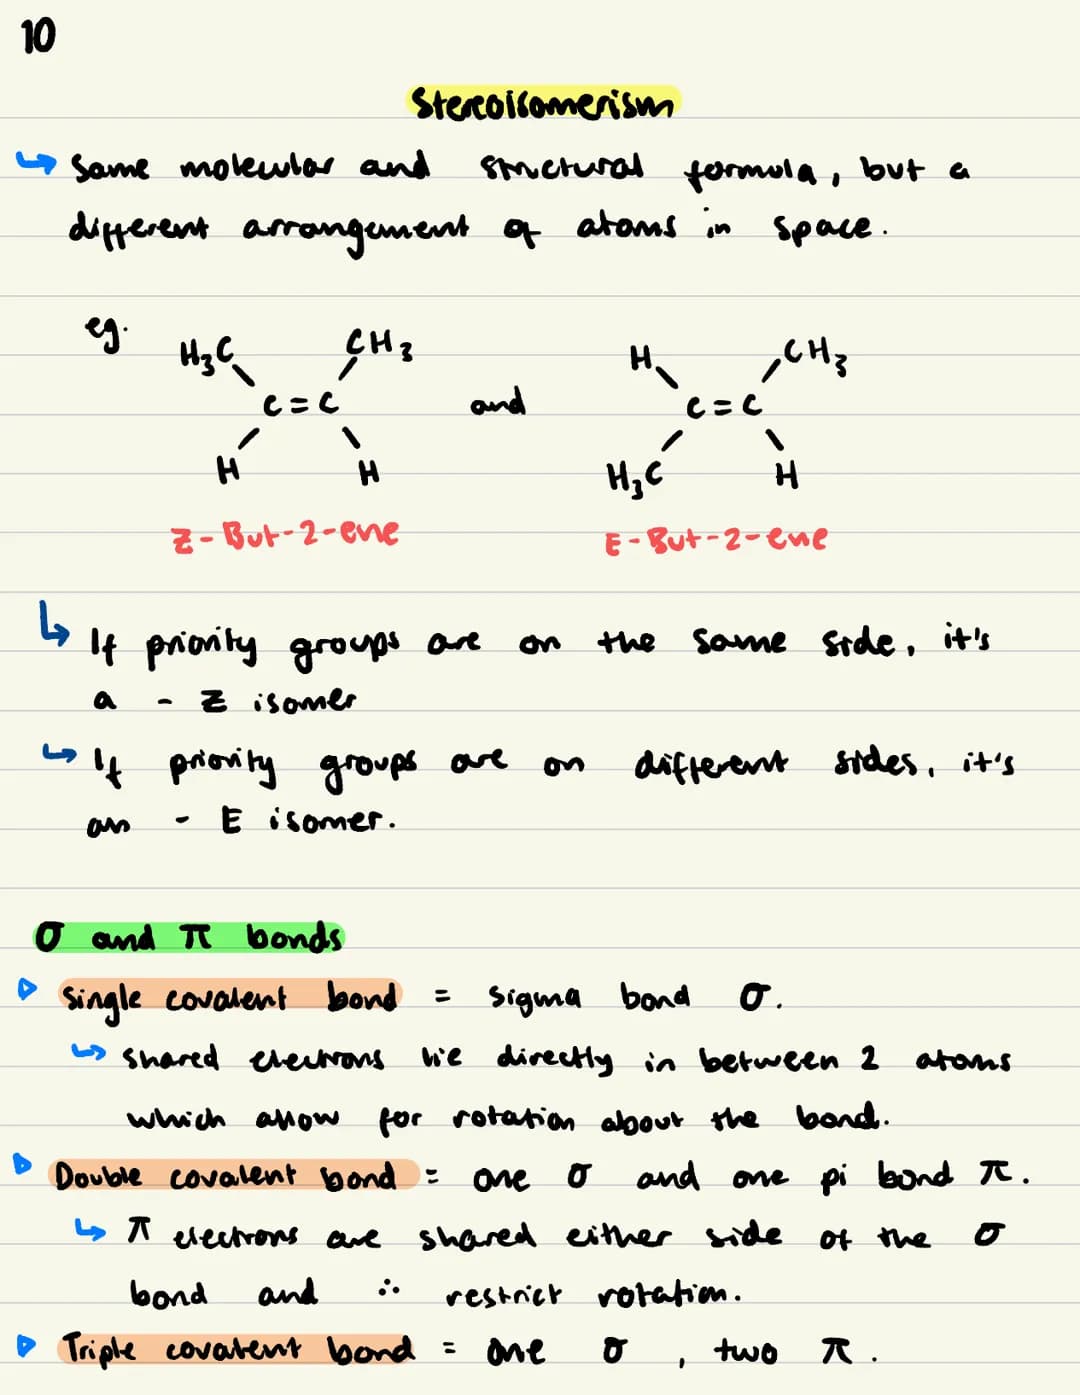 10
Stereoisomerism
↳ Same molecular and structural formula, but a
different arrangement of atoms in space.
eg.
H₃C CH₃ H CH₃
C=C and C=C
H H H₃C H
Z-But-2-ene E-But-2-ene
↳ If priority groups are on the same side, it's
a - Z isomer
↳ If priority groups are on different sides, it's
an - E isomer.
σ and π bonds
▷ Single covalent bond = sigma bond σ.
↳ shared electrons lie directly in between 2 atoms
which allow for rotation about the bond.
▷ Double covalent bond = one σ and one pi bond π.
↳ π electrons are shared either side of the σ
bond and ∴ restrict rotation.
▷ Triple covalent bond = one σ, two π.